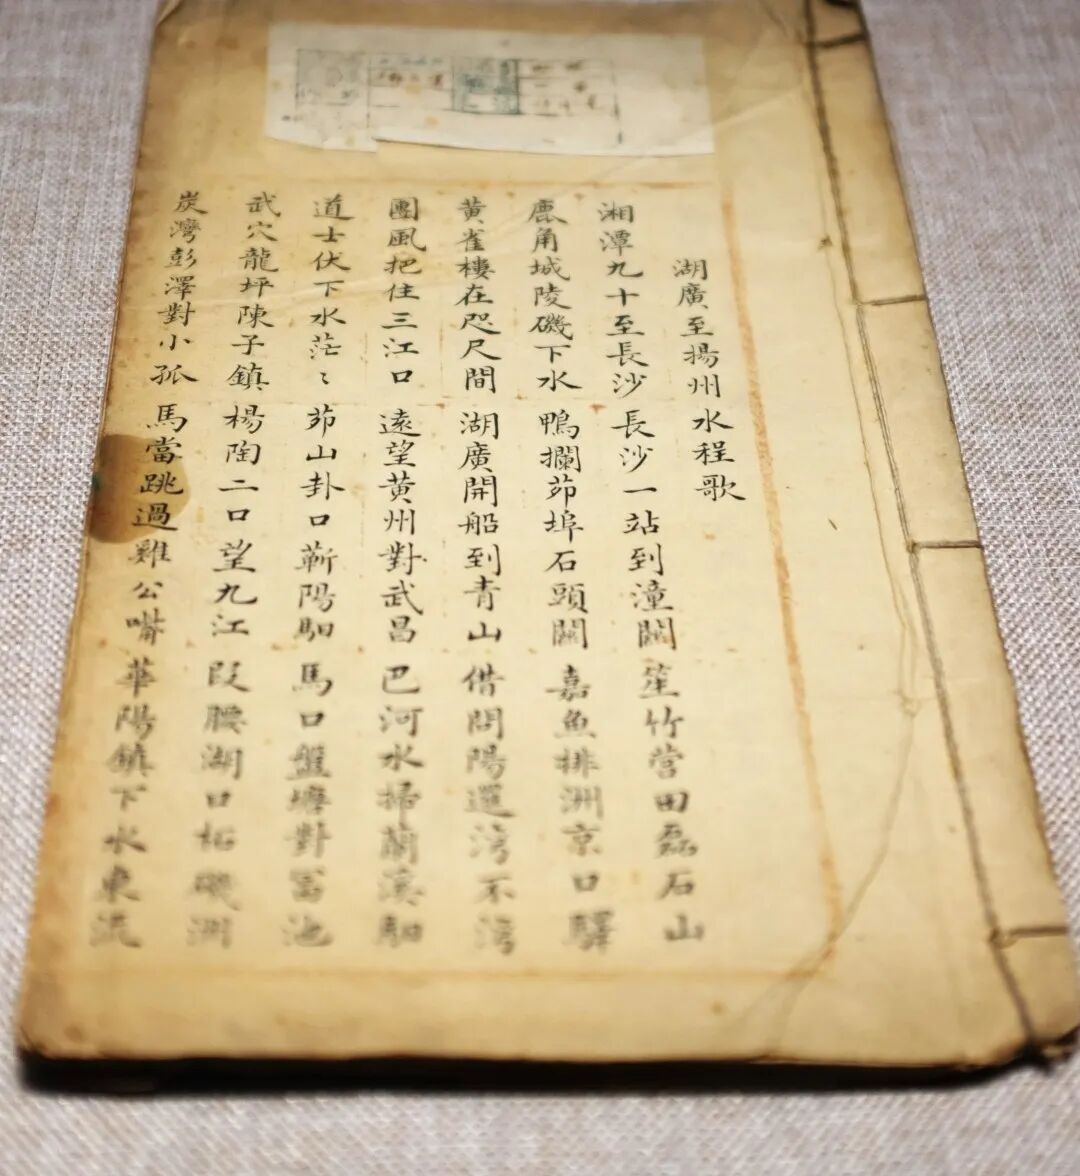 湖廣至揚州水程歌
湘潭九十至長沙 長沙一站到潼關 笙竹营田磊石山
鹿角城陵磯下水 鴨攔茆埠石頭關 嘉魚排洲京口驛
黄雀樓在咫尺間 湖廣開船到青山 借問陽邏湾不湾
團風把住三江口 遠望黄州對武昌 巴河水掃蘭溪馹
道士伏下水茫〻 茆山卦口蘄陽馹 馬口盤塘對富池
武穴龍坪陳子鎮 楊陶二口望九江 段腰湖口柘磯洲
炭灣彭澤對小孤 馬當跳過雞公嘴 華陽鎮下水東流